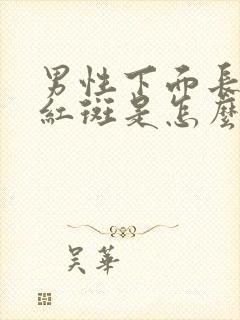 男性下面長
紅斑是怎麼
吴華